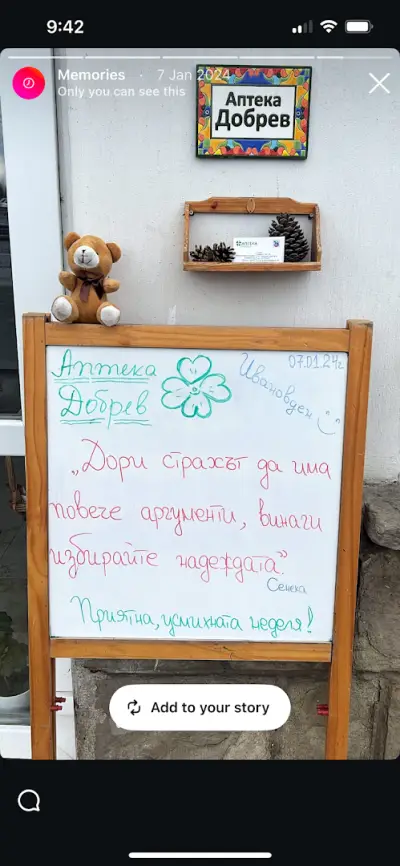 9:42
Memories · 7 Jan 2024
Only you can see this
Аптека
Добрев
Аптека
Добрев
07.01.24г
Ивановден
„Дори страхът да има
повече аргументи, винаги
избирайте надеждата."
Сенека
Приятна, усмихната неделя!
Add to your story